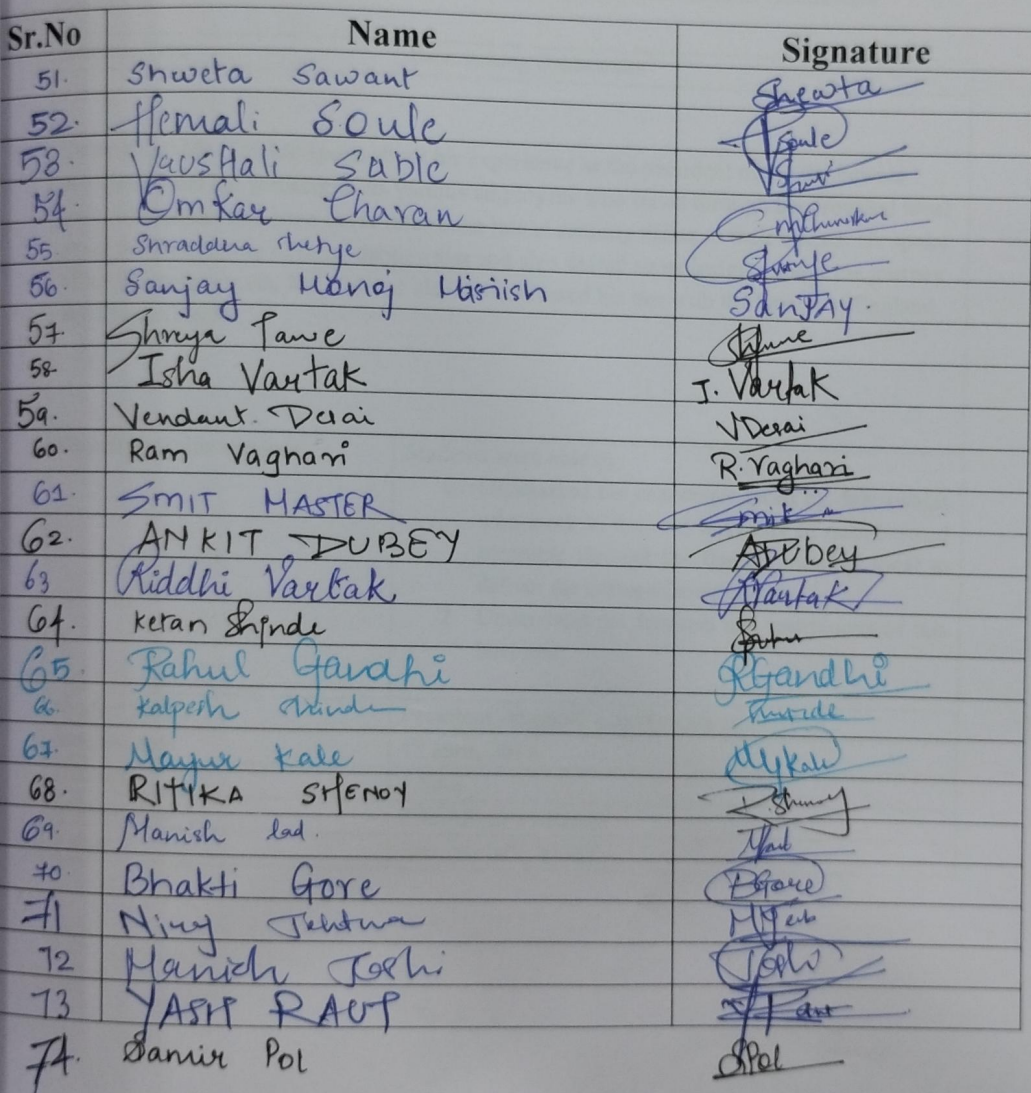 Sr.No Name Signature
51. Shweta Sawant Shewta
52. Hemali Soule Soule
53. Vaushali Sable
54. Omkar Charan
55 Shraddha Shetye
56. Sanjay Manoj SanJAY.
57. Shreya Tawe
58- Isha Vartak I. Vartak
59. Vendant. Desai VDesai
60. Ram Vaghari R. Vaghari
61. SMIT MASTER Smit
62. ANKIT DUBEY ADUbey
63 Riddhi Vartak RVartak
64. Ketan Shinde
65. Rahul Gandhi RGandhi
66. Kalpesh Shinde
67. Mayur Kale MyKale
68. RITIKA SHENOY R.Shenoy
69. Manish lad.
70. Bhakti Gore BGore
71
72 Manish Joshi Joshi
73 YASH RAUT
74. Samir Pol SPol